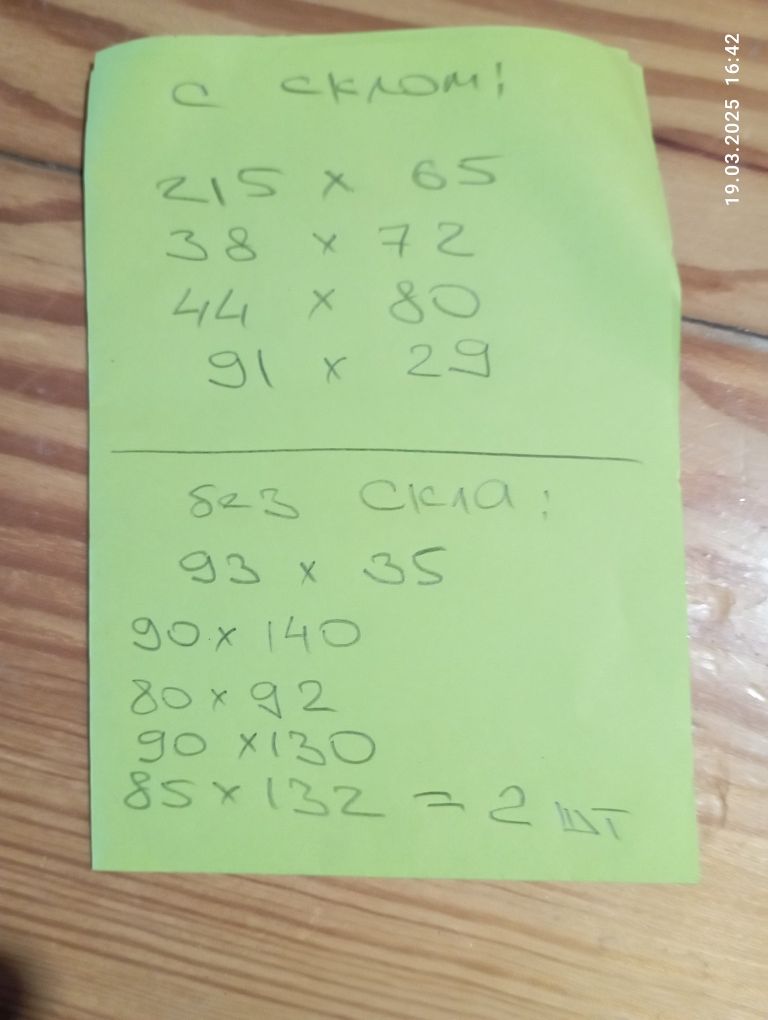 с склом:
215 x 65
38 x 72
44 x 80
91 x 29
без скла:
93 x 35
90 x 140
80 x 92
90 x 130
85 x 132 = 2 шт
19.03.2025 16:42